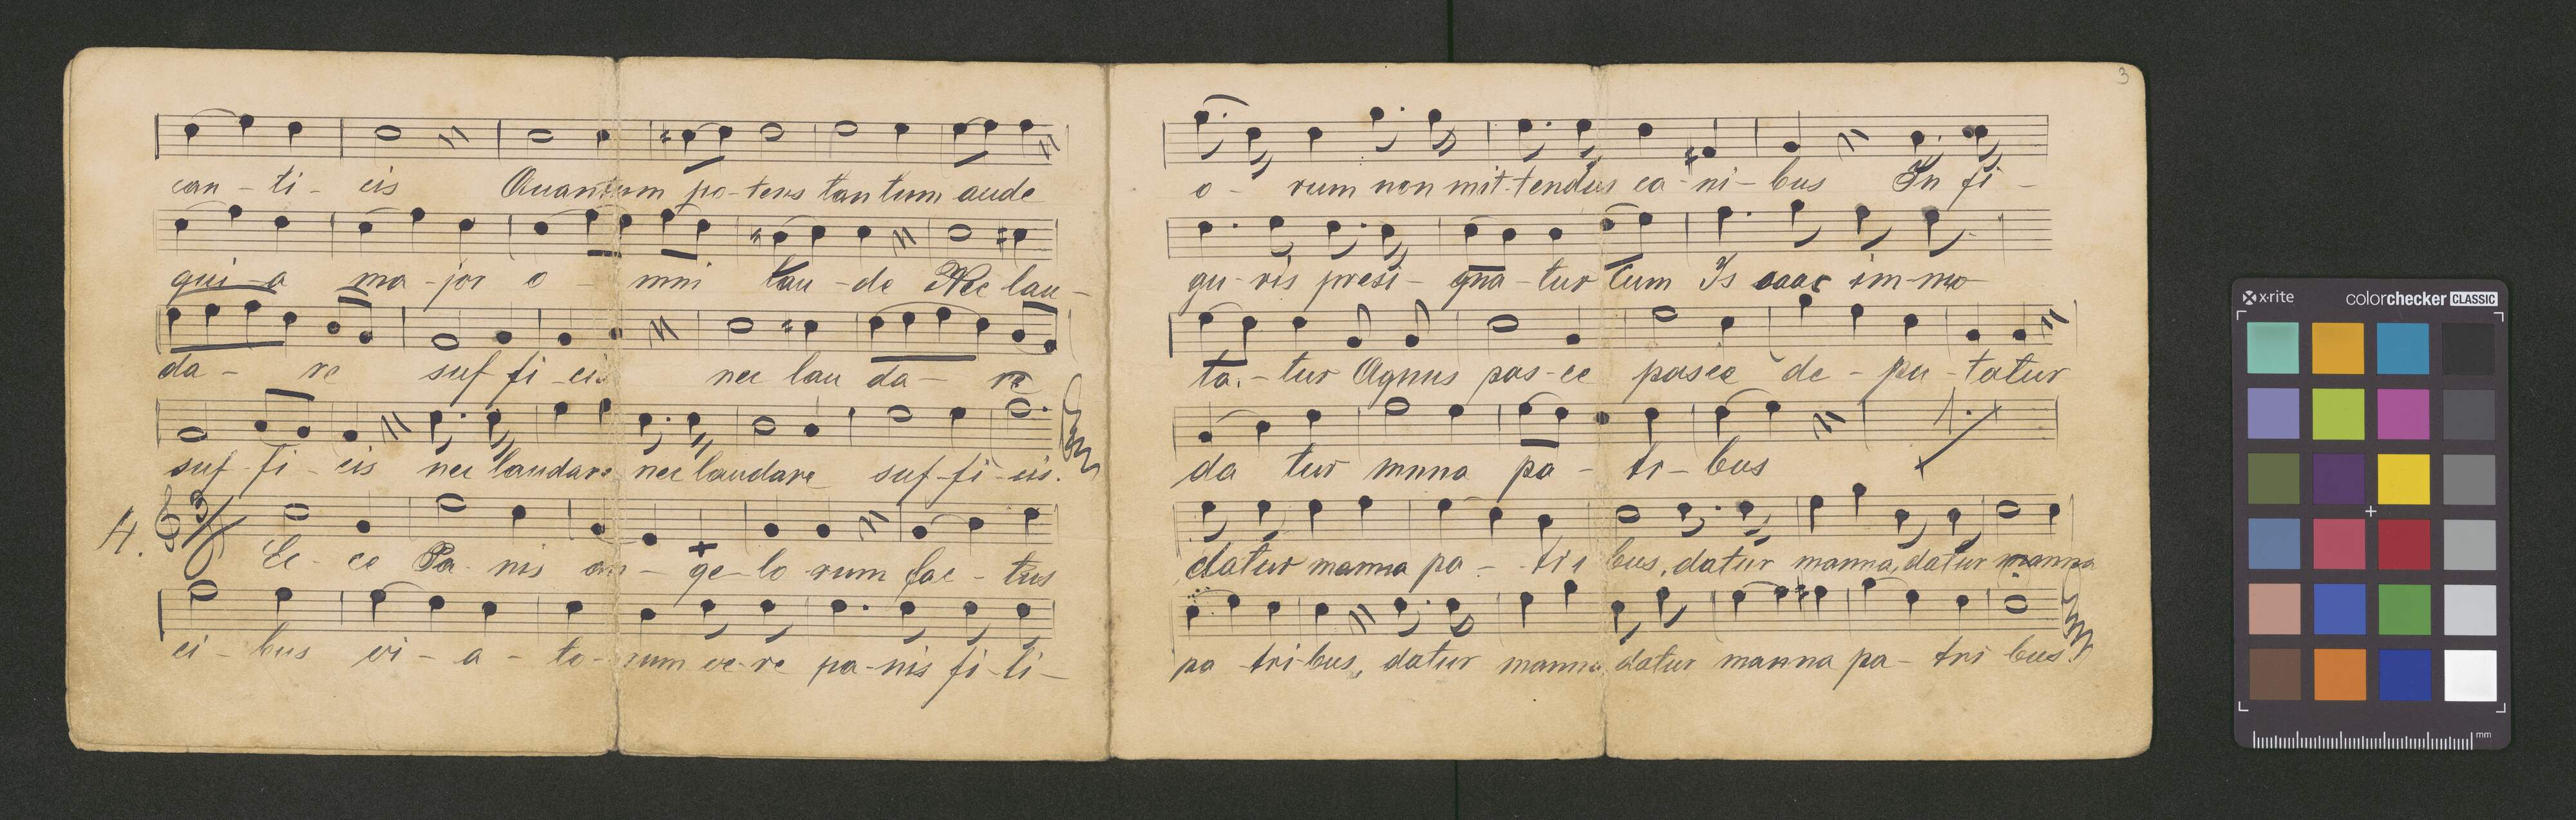 can - ti - cis Quantum po-tens tantum aude
qui - a ma - jor o - mni lau - de Nec lau -
da - re suf fi - cis nec lau da - re
suf - fi - cis nec laudare nec laudare suf - fi - cis.
4. 3 Ec - ce Pa - nis an - ge - lo - rum fac - tus
ci - bus vi - a - to - rum ve - re pa - nis fi - li -
3
o - rum non mit - tendus ca - ni - bus In fi -
gu - ris presi - gna - tur cum Is aaac im - mo
ta. - tur Agnus pas - ce pasce de - pu - tatur
da tur mnna pa - tri - bus
datur manna pa - tri bus, datur manna, datur manna
pa - tri - bus, datur manna, datur manna pa - tri bus.
x-rite colorchecker CLASSIC
mm